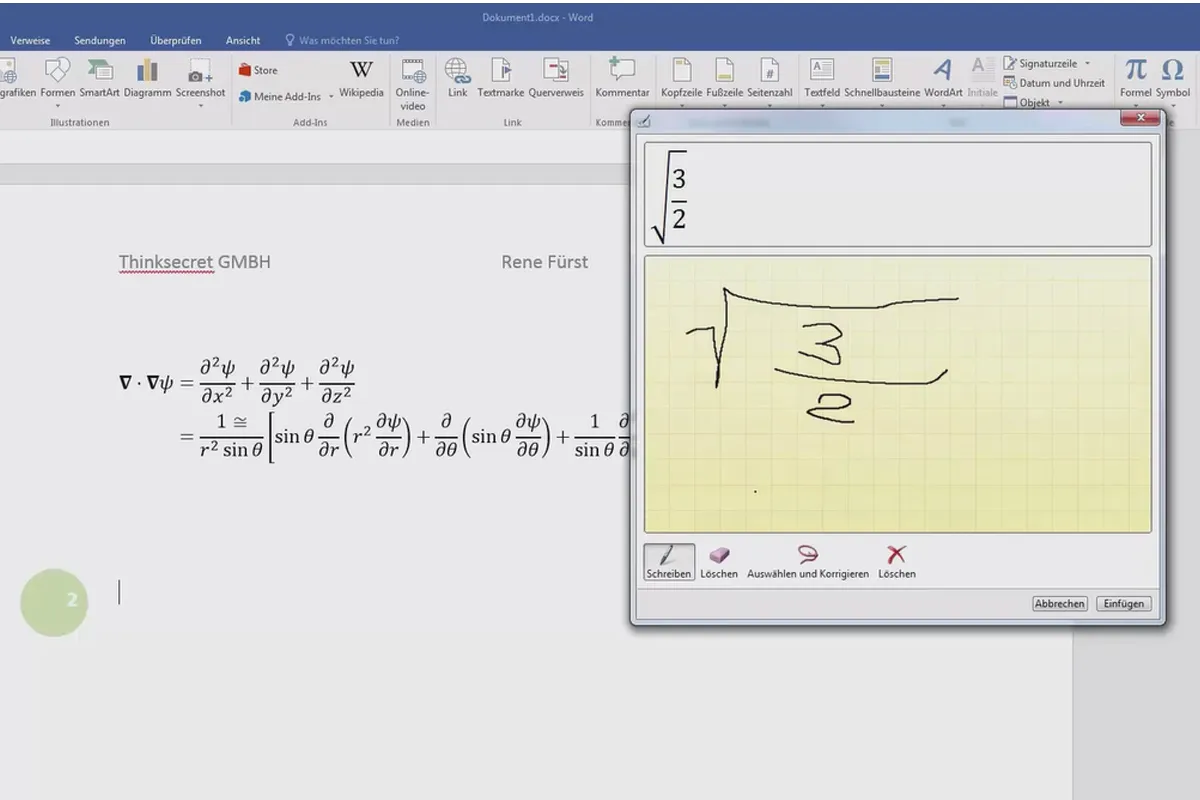 Dokument1.docx - Word
Verweise Sendungen Überprüfen Ansicht Was möchten Sie tun?
grafiken Formen SmartArt Diagramm Screenshot
Illustrationen
Store
Meine Add-Ins
Wikipedia
Add-Ins
Online-
video
Medien
Link Textmarke Querverweis
Link
Kommentar
Komme
Kopfzeile Fußzeile Seitenzahl
Textfeld Schnellbausteine WordArt Initiale
Signaturzeile
Datum und Uhrzeit
Objekt
π Ω
Formel Symbol
√(3/2)
√(3/2)
Schreiben Löschen Auswählen und Korrigieren Löschen
Abbrechen Einfügen
Thinksecret GMBH Rene Fürst
∇ · ∇ψ = ∂²ψ/∂x² + ∂²ψ/∂y² + ∂²ψ/∂z²
= 1 ≅/r² sin θ [sin θ ∂/∂r (r² ∂ψ/∂r) + ∂/∂θ (sin θ ∂ψ/∂θ) + 1/sin θ ∂/∂
2